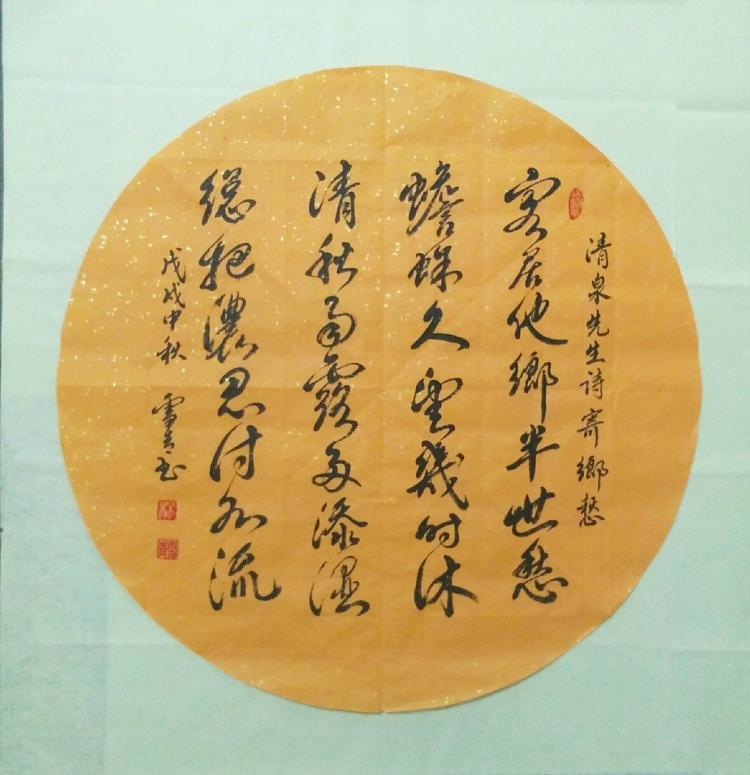 清泉先生诗寄鄉愁
客居他鄉半世愁
蟾蜍久望幾时休
清秋雨露多添湿
總把濃思付水流
戊戌中秋 雪书